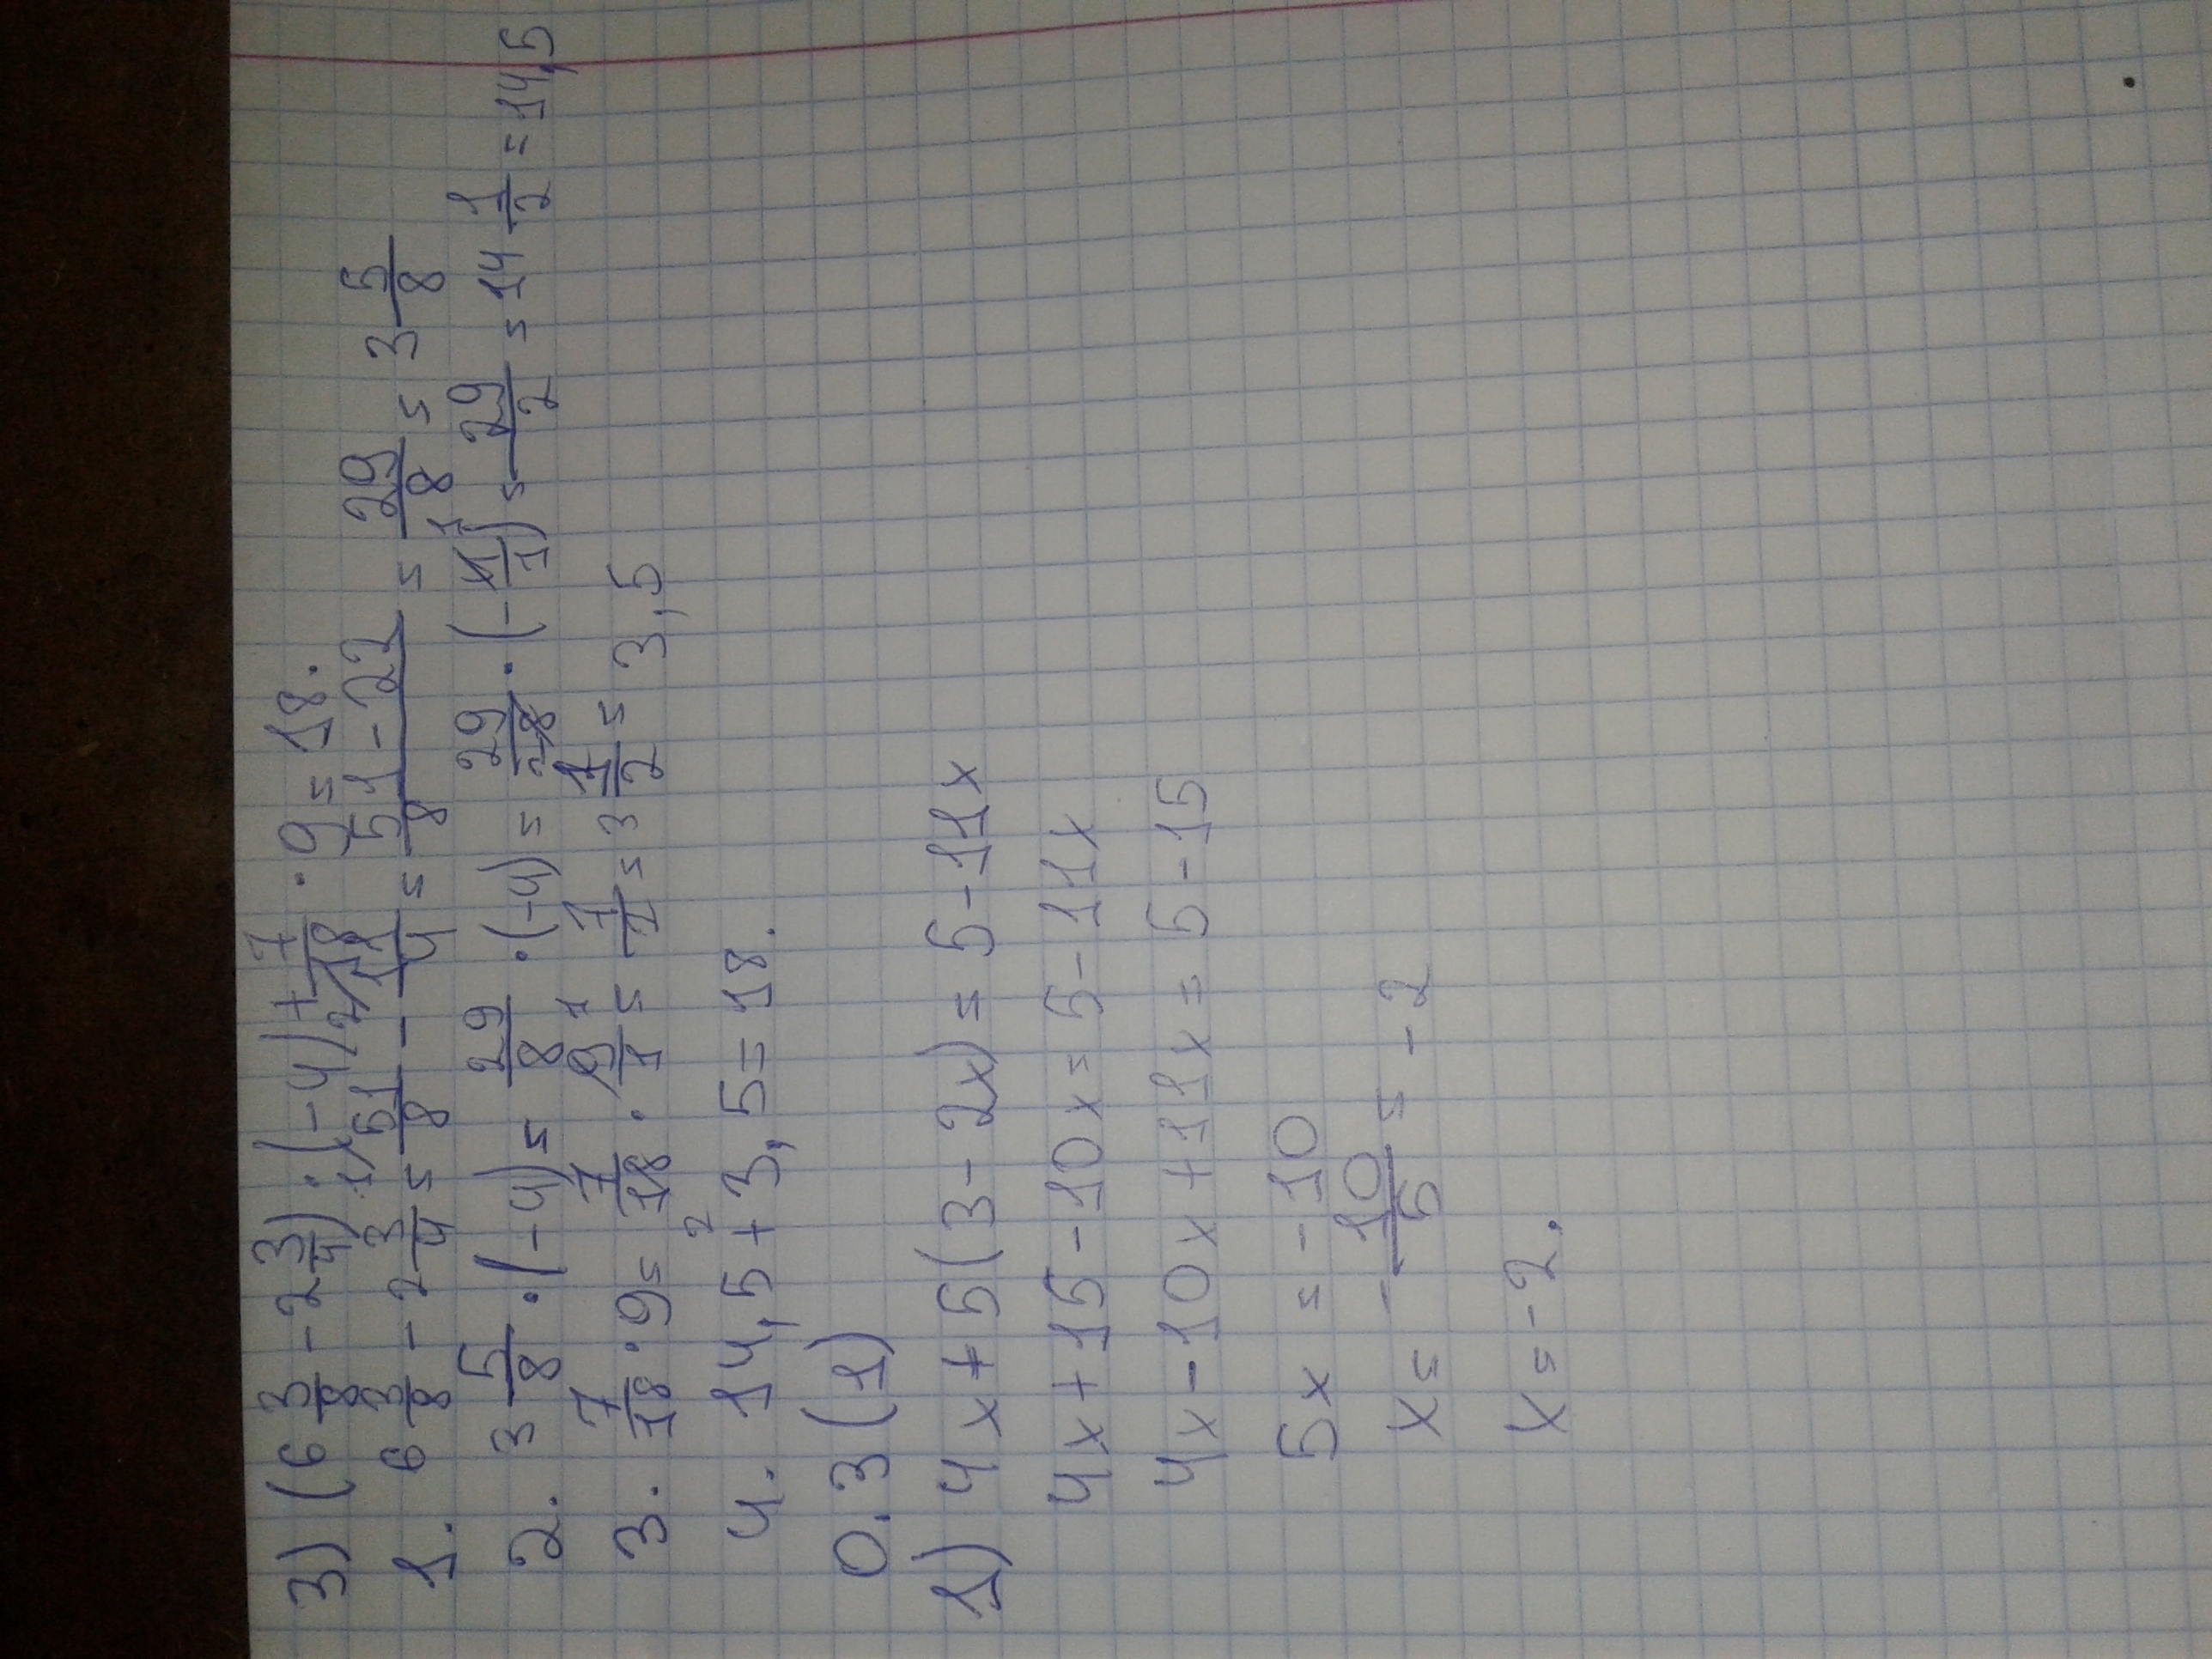 3) (6 3/8 - 2 3/4) · (-4) + 7/18 · 9 = 18.
1. 6 3/8 - 2 3/4 = 51/8 - 11/4 = 51-22/8 = 29/8 = 3 5/8
2. 3 5/8 · (-4) = 29/8 · (-4) = 29/8 · (-4/1) = 29/2 = 14 1/2 = 14,5
3. 7/18 · 9 = 7/18 · 9/1 = 7/2 = 3 1/2 = 3,5
4. 14,5 + 3,5 = 18.
0.3 (1)
1) 4x + 5(3 - 2x) = 5 - 11x
4x + 15 - 10x = 5 - 11x
4x - 10x + 11x = 5 - 15
5x = -10
x = - 10/5 = -2
x = -2.